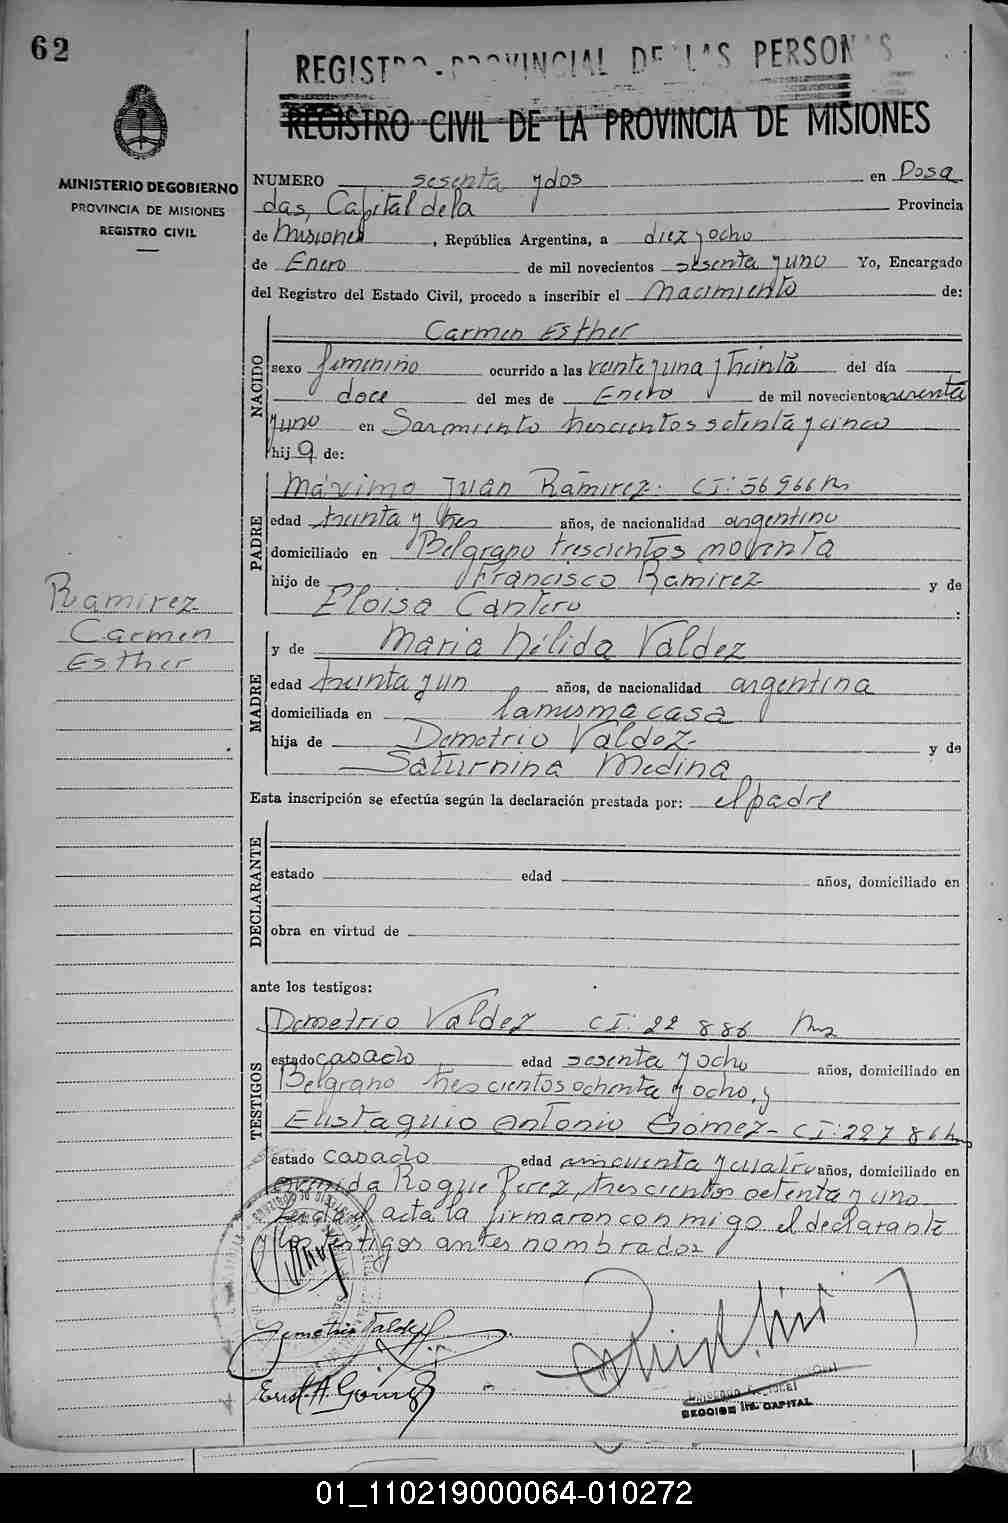 62
REGISTRO PROVINCIAL DE LAS PERSONAS
REGISTRO CIVIL DE LA PROVINCIA DE MISIONES
MINISTERIO DE GOBIERNO
PROVINCIA DE MISIONES
REGISTRO CIVIL
NUMERO sesenta y dos en Posa
das, Capital de la Provincia
de Misiones, República Argentina, a diez y ocho
de Enero de mil novecientos sesenta y uno Yo, Encargado
del Registro del Estado Civil, procedo a inscribir el Nacimiento de:
NACIDO
Carmen Esther
sexo femenino ocurrido a las veinte y una y treinta del día
doce del mes de Enero de mil novecientos sesenta
y uno en Sarmiento trescientos setenta y cinco
hij a de:
PADRE
Máximo Juan Ramirez. CI: 56966 M
edad treinta y tres años, de nacionalidad argentino
domiciliado en Belgrano trescientos noventa
hijo de Francisco Ramirez y de
Eloisa Cantero :
Ramirez
Carmen
Esther
MADRE
y de Maria Nélida Valdez
edad treinta y un años, de nacionalidad argentina
domiciliada en la misma casa
hija de Demetrio Valdez y de
Saturnina Medina
Esta inscripción se efectúa según la declaración prestada por: el padre
DECLARANTE
estado edad años, domiciliado en
obra en virtud de
ante los testigos:
TESTIGOS
Demetrio Valdez CI: 22 886 Mns
estado casado edad sesenta y ocho años, domiciliado en
Belgrano trescientos ochenta y ocho, y
Eustaquio Antonio Gomez - CI: 227 86 M
estado casado edad cincuenta y cuatro años, domiciliado en
avenida Roque Perez, trescientos setenta y uno
Leída el acta la firmaron conmigo el declarante
y los testigos antes nombrados
Demetrio Valdez
Eust. A. Gómez
SECCION 1ra. CAPITAL
01_110219000064-010272